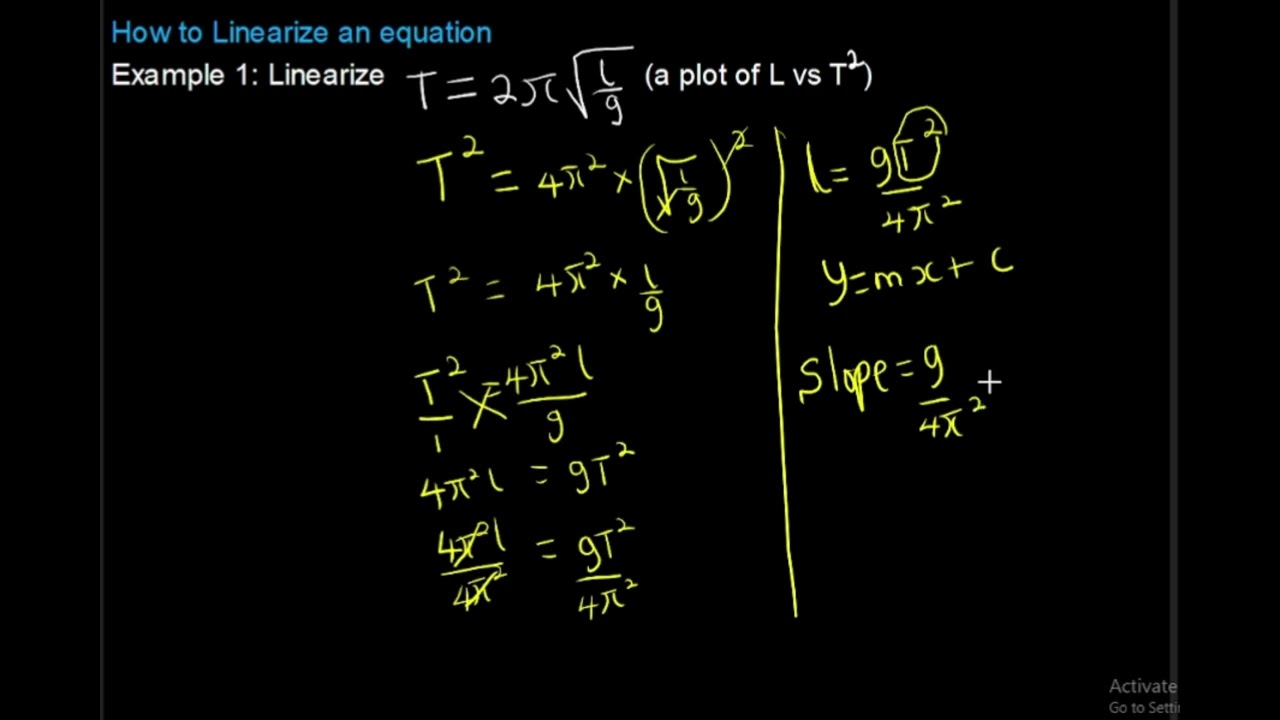 How to Linearize an equation
Example 1: Linearize T = 2π√(l/g) (a plot of L vs T²)
T² = 4π² × (√(l/g))²
T² = 4π² × l/g
T²/1 = 4π² l/g
4π² l = gT²
4π² l/4π² = gT²/4π²
l = gT²/4π²
y = mx + c
Slope = g/4π²
Activate
Go to Setti